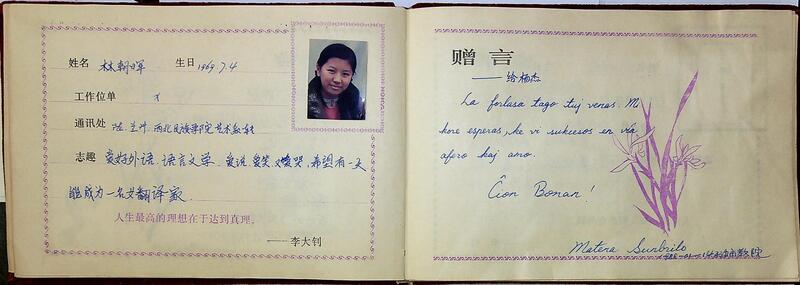 姓名 林朝晖 生日 1969.7.4
工作位单
通讯处 陇.兰州.西北民族学院艺术系转
志趣 爱好外语、语言文学、爱说爱笑又爱哭,希望有一天
能成为一名女翻译家.
人生最高的理想在于达到真理。
——李大钊
赠言
——给杨杰
La forlasa tago tuj venas. M
kore esperas, ke vi sukcesos en via
afero kaj amo.
Ĉion Bonan!
Matena Sunbrilo